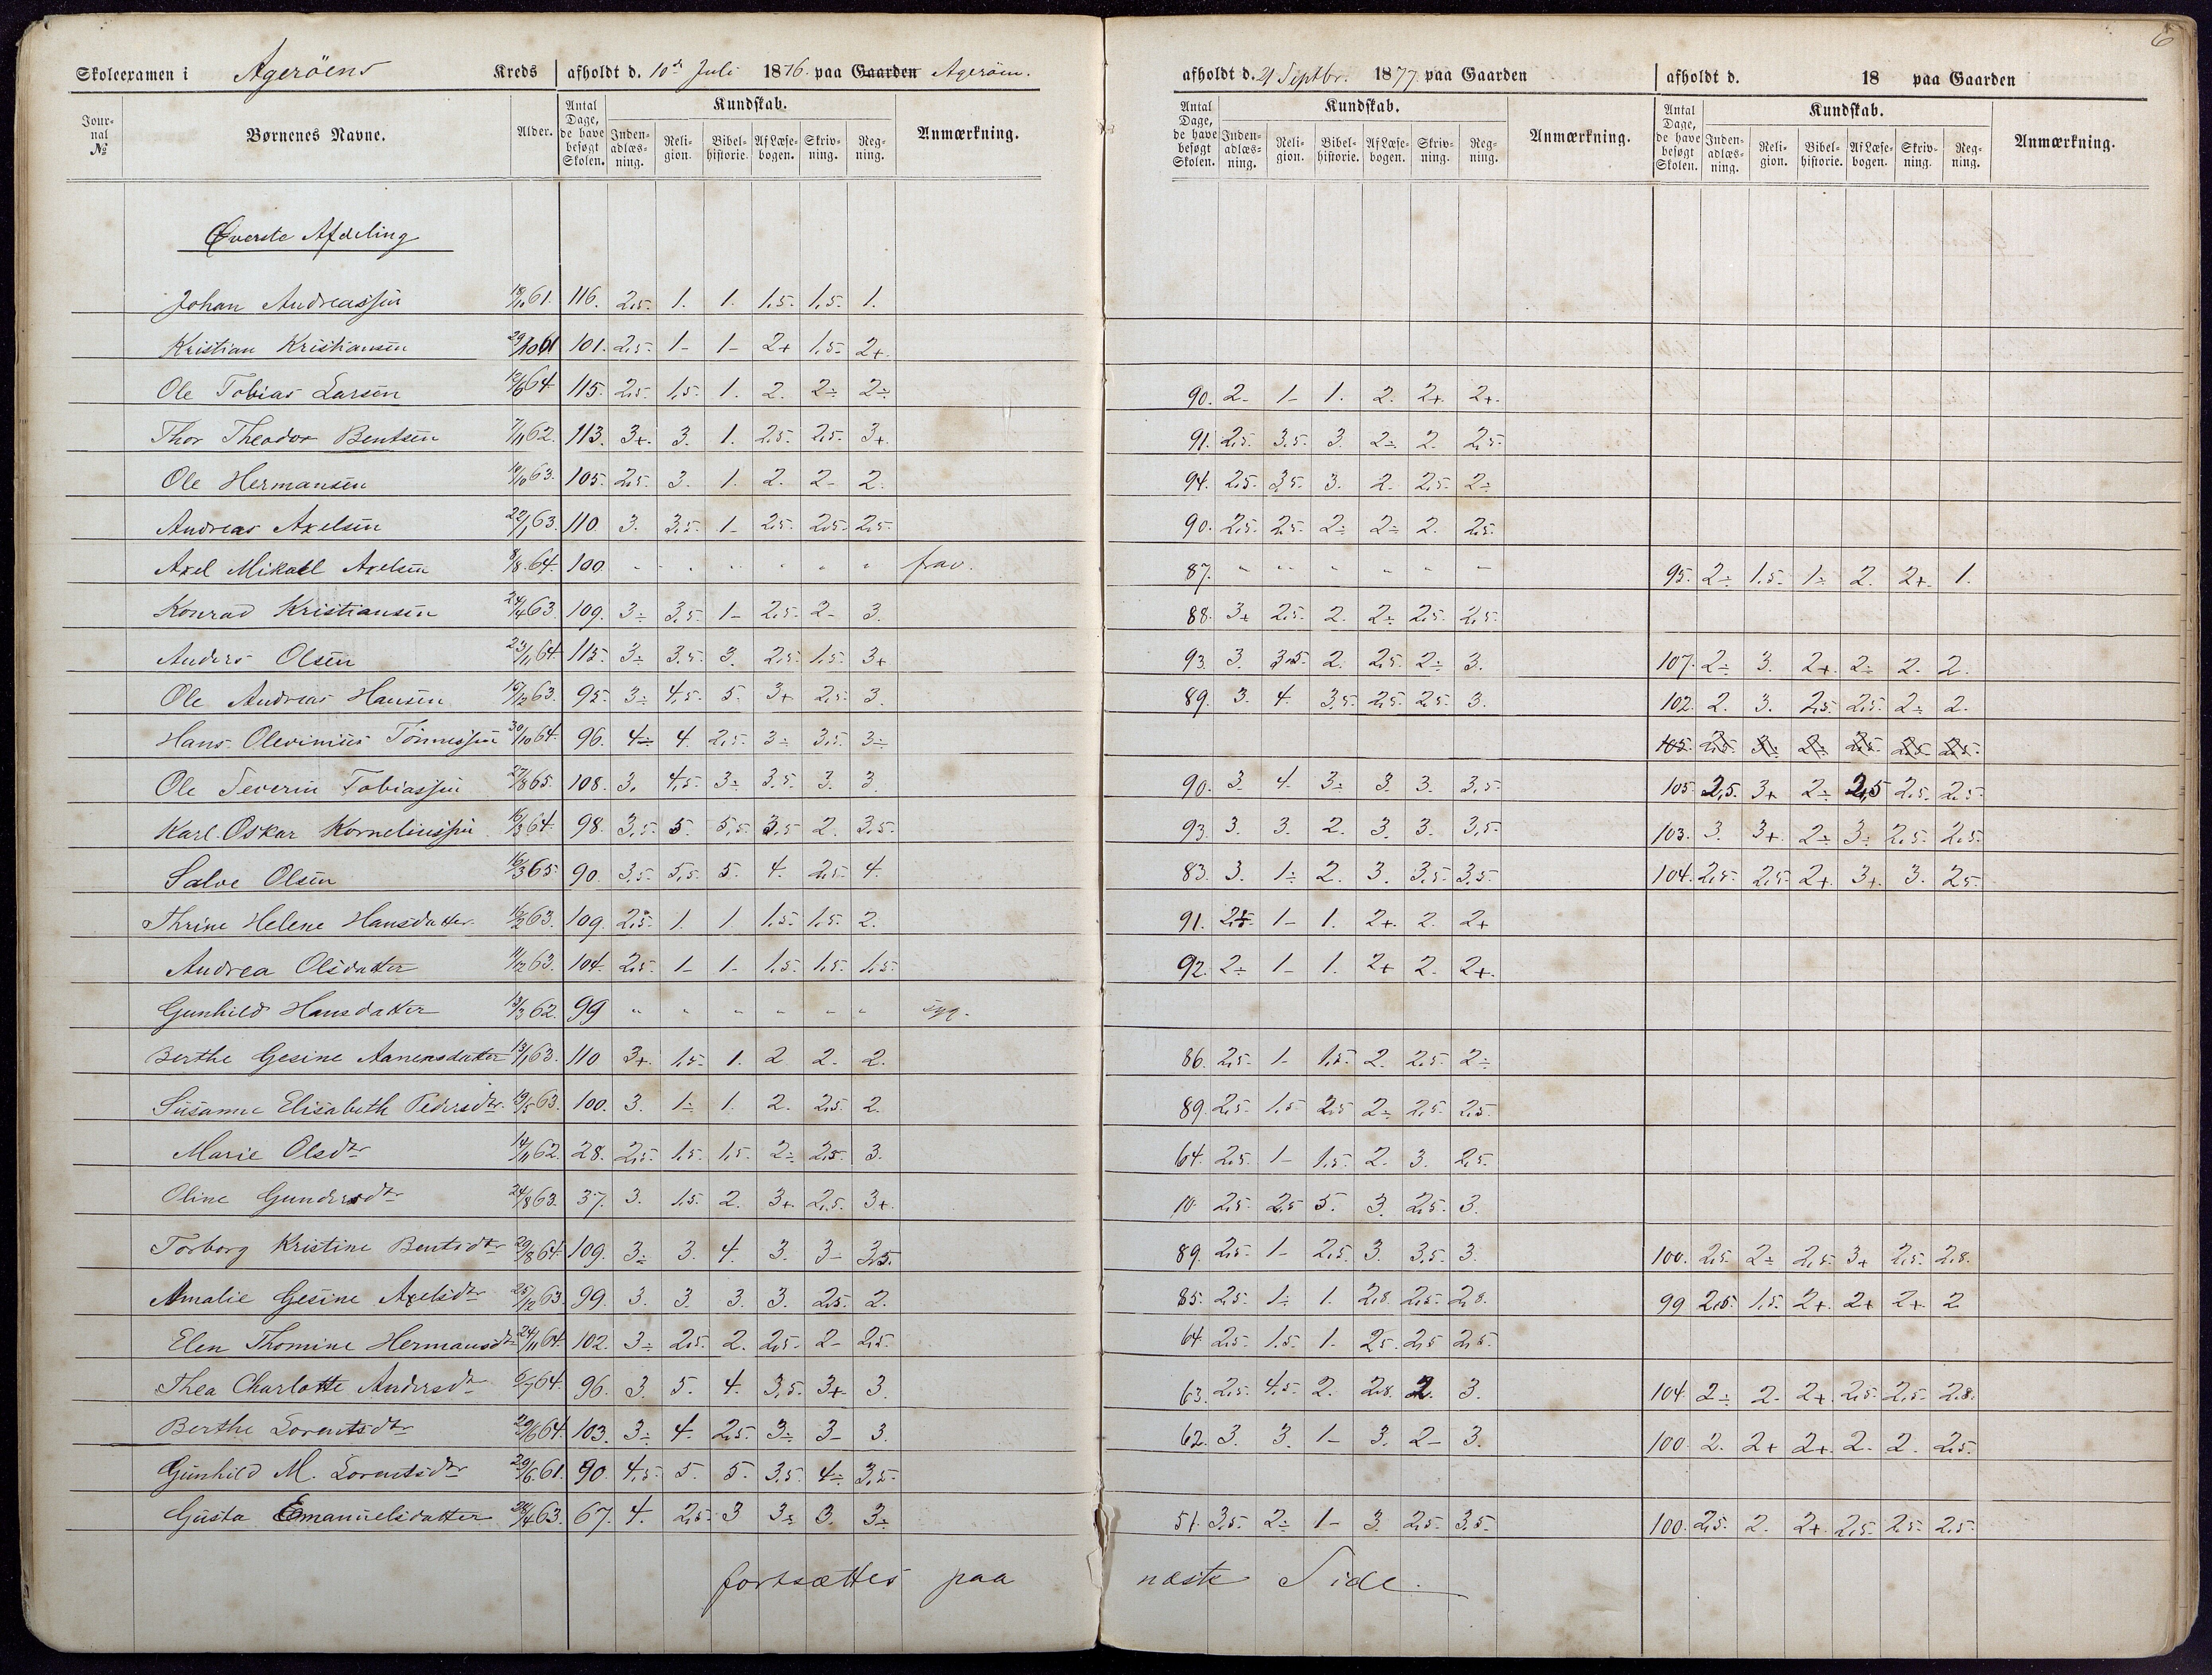 6
Skoleexamen i Agerøens Kreds afholdt d. 10de Juli 1876. paa Gaarden Agerøen. afholdt d. 21 Septbr. 1877 paa Gaarden afholdt d. 18 paa Gaarden
Jour-nal No Børnenes Navne. Alder. Antal Dage, de have besøgt Skolen. Kundskab. Inden-adlæs-ning. Reli-gion. Bibel-historie. Af Læse-bogen. Skriv-ning. Reg-ning. Anmærkning. Antal Dage, de have besøgt Skolen. Kundskab. Inden-adlæs-ning. Reli-gion. Bibel-historie. Af Læse-bogen. Skriv-ning. Reg-ning. Anmærkning. Antal Dage, de have besøgt Skolen. Kundskab. Inden-adlæs-ning. Reli-gion. Bibel-historie. Af Læse-bogen. Skriv-ning. Reg-ning. Anmærkning.
Øverste Afdeling
Johan Andreassen 18/10 61. 116. 2,5. 1. 1. 1,5. 1,5. 1.
Kristian Kristiansen 29/10 61 101. 2,5. 1- 1- 2+ 1,5- 2+.
Ole Tobias Larsen 64 115. 2,5. 1,5. 1. 2. 2÷ 2÷ 90. 2- 1- 1. 2. 2+. 2+.
Thor Theodor Bentsen 7/11 62. 113. 3+. 3. 1. 2,5. 2,5. 3+. 91. 2,5. 3,5. 3. 2÷ 2. 2,5.
Ole Hermansen 19/10 63. 105. 2,5. 3. 1. 2. 2- 2. 94. 2,5. 3,5. 3. 2. 2,5. 2÷
Andreas Axelsen 22/1 63. 110. 3. 3,5. 1- 2,5. 2,5. 2,5. 90. 2,5. 2,5. 2÷ 2÷ 2. 2,5.
Axel Mikael Axelsen 8/8. 64. 100. " " " " " " frav. 87. " " " " " " 95. 2÷ 1,5. 1÷ 2. 2+. 1.
Konrad Kristiansen 24/4 63 109. 3÷ 3,5. 1- 2,5. 2- 3. 88. 3+ 2,5. 2. 2÷ 2,5. 2,5.
Anders Olsen 23/11 64. 115. 3÷ 3,5. 3. 2,5. 1,5. 3+ 93. 3. 3,5. 2. 2,5. 2÷ 3. 107. 2÷ 3. 2+. 2÷ 2. 2.
Ole Andreas Hansen 19/12 63. 95. 3÷ 4,5. 5. 3+ 2,5. 3. 89. 3. 4. 3,5. 2,5. 2,5. 3. 102. 2. 3. 2,5. 2,5. 2÷ 2.
Hans Olevinius Tønnessen 30/10 64. 96. 4÷ 4. 2,5. 3÷ 3,5. 3÷ 105.
Ole Severin Tobiassen 27/8 65. 108. 3. 4,5. 3÷ 3,5. 3. 3. 90. 3. 4. 3÷ 3. 3. 3,5. 105 2,5. 3+ 2÷ 2,5 2,5. 2,5.
Karl Oskar Korneliussen 16/3 64. 98. 3,5. 5. 5,5. 3,5 2. 3,5. 93. 3. 3. 2. 3. 3. 3,5. 103. 3. 3+ 2÷ 3÷ 2,5. 2,5.
Salve Olsen 16/3 65. 90. 3,5. 5,5. 5. 4. 2,5. 4. 83. 3. 1÷ 2. 3. 3,5. 3,5. 104. 2,5. 2,5. 2+. 3+. 3. 2,5.
Thrine Helene Hansdatter. 63. 109. 2,5. 1. 1 1,5. 1,5. 2. 91. 1- 1. 2+. 2. 2+
Andrea Olsdatter 11/12 63. 104. 2,5. 1- 1- 1,5. 1,5. 1,5. 92. 2÷ 1- 1. 2+ 2. 2+.
Gunhild Hansdatter 13/3 62. 99 " " " " " " syg.
Berthe Gesine Aanensdatter 13/1 63. 110 3+. 1,5. 1. 2 2. 2. 86. 2,5. 1- 1,5. 2. 2,5. 2÷
Susanne Elisabeth Pedersdtr. 19/5 63. 100. 3. 1÷ 1. 2. 2,5. 2. 89. 2,5. 1,5 2,5 2÷ 2,5. 2,5.
Marie Olsdtr 14/11 62. 28. 2,5. 1,5. 1,5. 2÷ 2,5. 3. 64. 2,5. 1- 1,5. 2. 3. 2,5.
Oline Gundersdtr 24/8 63. 37. 3. 1,5. 2. 3+. 2,5. 3+. 10. 2,5. 2,5 5. 3. 2,5. 3.
Torborg Kristine Bentsdtr 29/8 64. 109. 3÷ 3. 4. 3. 3- 3,5. 89. 2,5. 1- 2,5. 3. 3,5. 3. 100. 2,5. 2÷ 2,5. 3+ 2,5. 2,8.
Amalie Gesine Axelsdtr 25/12 63. 99. 3. 3. 3. 3. 2,5. 2. 85. 2,5. 1÷ 1. 2,8. 2,5. 2,8. 99 2,5. 1,5. 2+. 2+ 2+ 2
Elen Thomine Hermansdtr 24/11 64. 102. 3÷ 2,5. 2. 2,5. 2- 2,5. 64. 2,5. 1,5. 1- 2,5. 2,5 2,5.
Thea Charlotte Andersdtr 6/7 64. 96. 3. 5. 4. 3,5. 3+. 3. 63. 2,5. 4,5. 2. 2,8. 2. 3. 104. 2÷ 2. 2+. 2,5. 2,5. 2,8.
Berthe Lorentsdtr 29/6 64. 103. 3÷ 4. 2,5. 3÷ 3- 3. 62. 3. 3. 1- 3. 2- 3. 100. 2. 2+ 2+. 2. 2. 2,5.
Gunhild M. Lorentsdtr 29/6. 61. 90. 4,5. 5. 5. 3,5. 4÷ 3,5.
Gusta Emanuelsdatter 63. 67. 4. 2,5. 3 3÷ 3. 3÷ 51. 3,5. 2÷ 1- 3. 2,5. 3,5. 100. 2,5. 2. 2+. 2,5. 2,5. 2,5.
fortsættes paa næste Side.